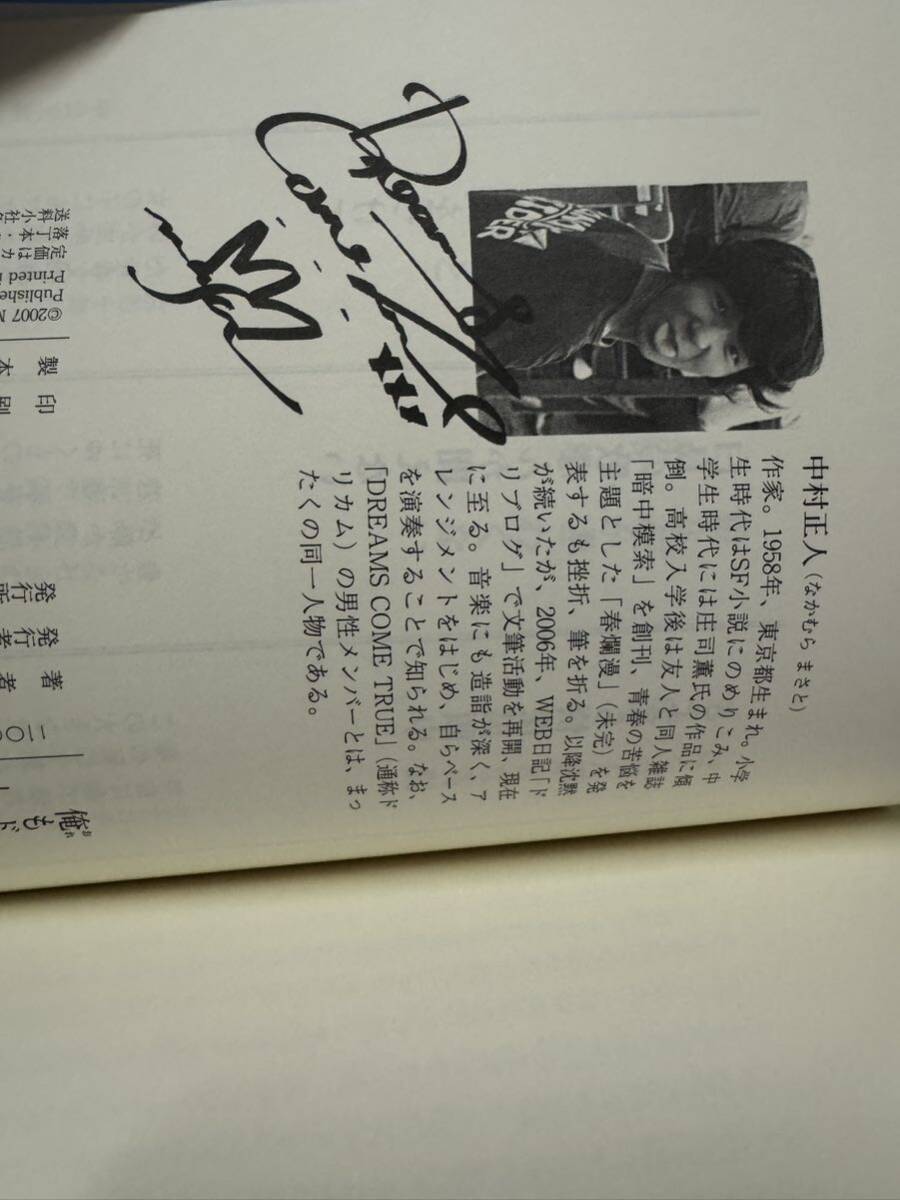 Dreams
Come true
中村正人(なかむら まさと)
作家。1958年、東京都生まれ。小学
生時代はSF小説にのめりこみ、中
学生時代には庄司薫氏の作品に傾
倒。高校入学後は友人と同人雑誌
「暗中模索」を創刊、青春の苦悩を
主題とした「春爛漫」(未完)を発
表するも挫折、筆を折る。以降沈黙
が続いたが、2006年、WEB日記「ド
リブログ」で文筆活動を再開、現在
に至る。音楽にも造詣が深く、ア
レンジメントをはじめ、自らベース
を演奏することで知られる。なお、
「DREAMS COME TRUE」(通称ド
リカム)の男性メンバーとは、まっ
たくの同一人物である。
俺もド
二〇
著者
発行者
発行所
印刷
製本
©2007
Publishe
Printed
定価はカ
落丁本・
送料小社